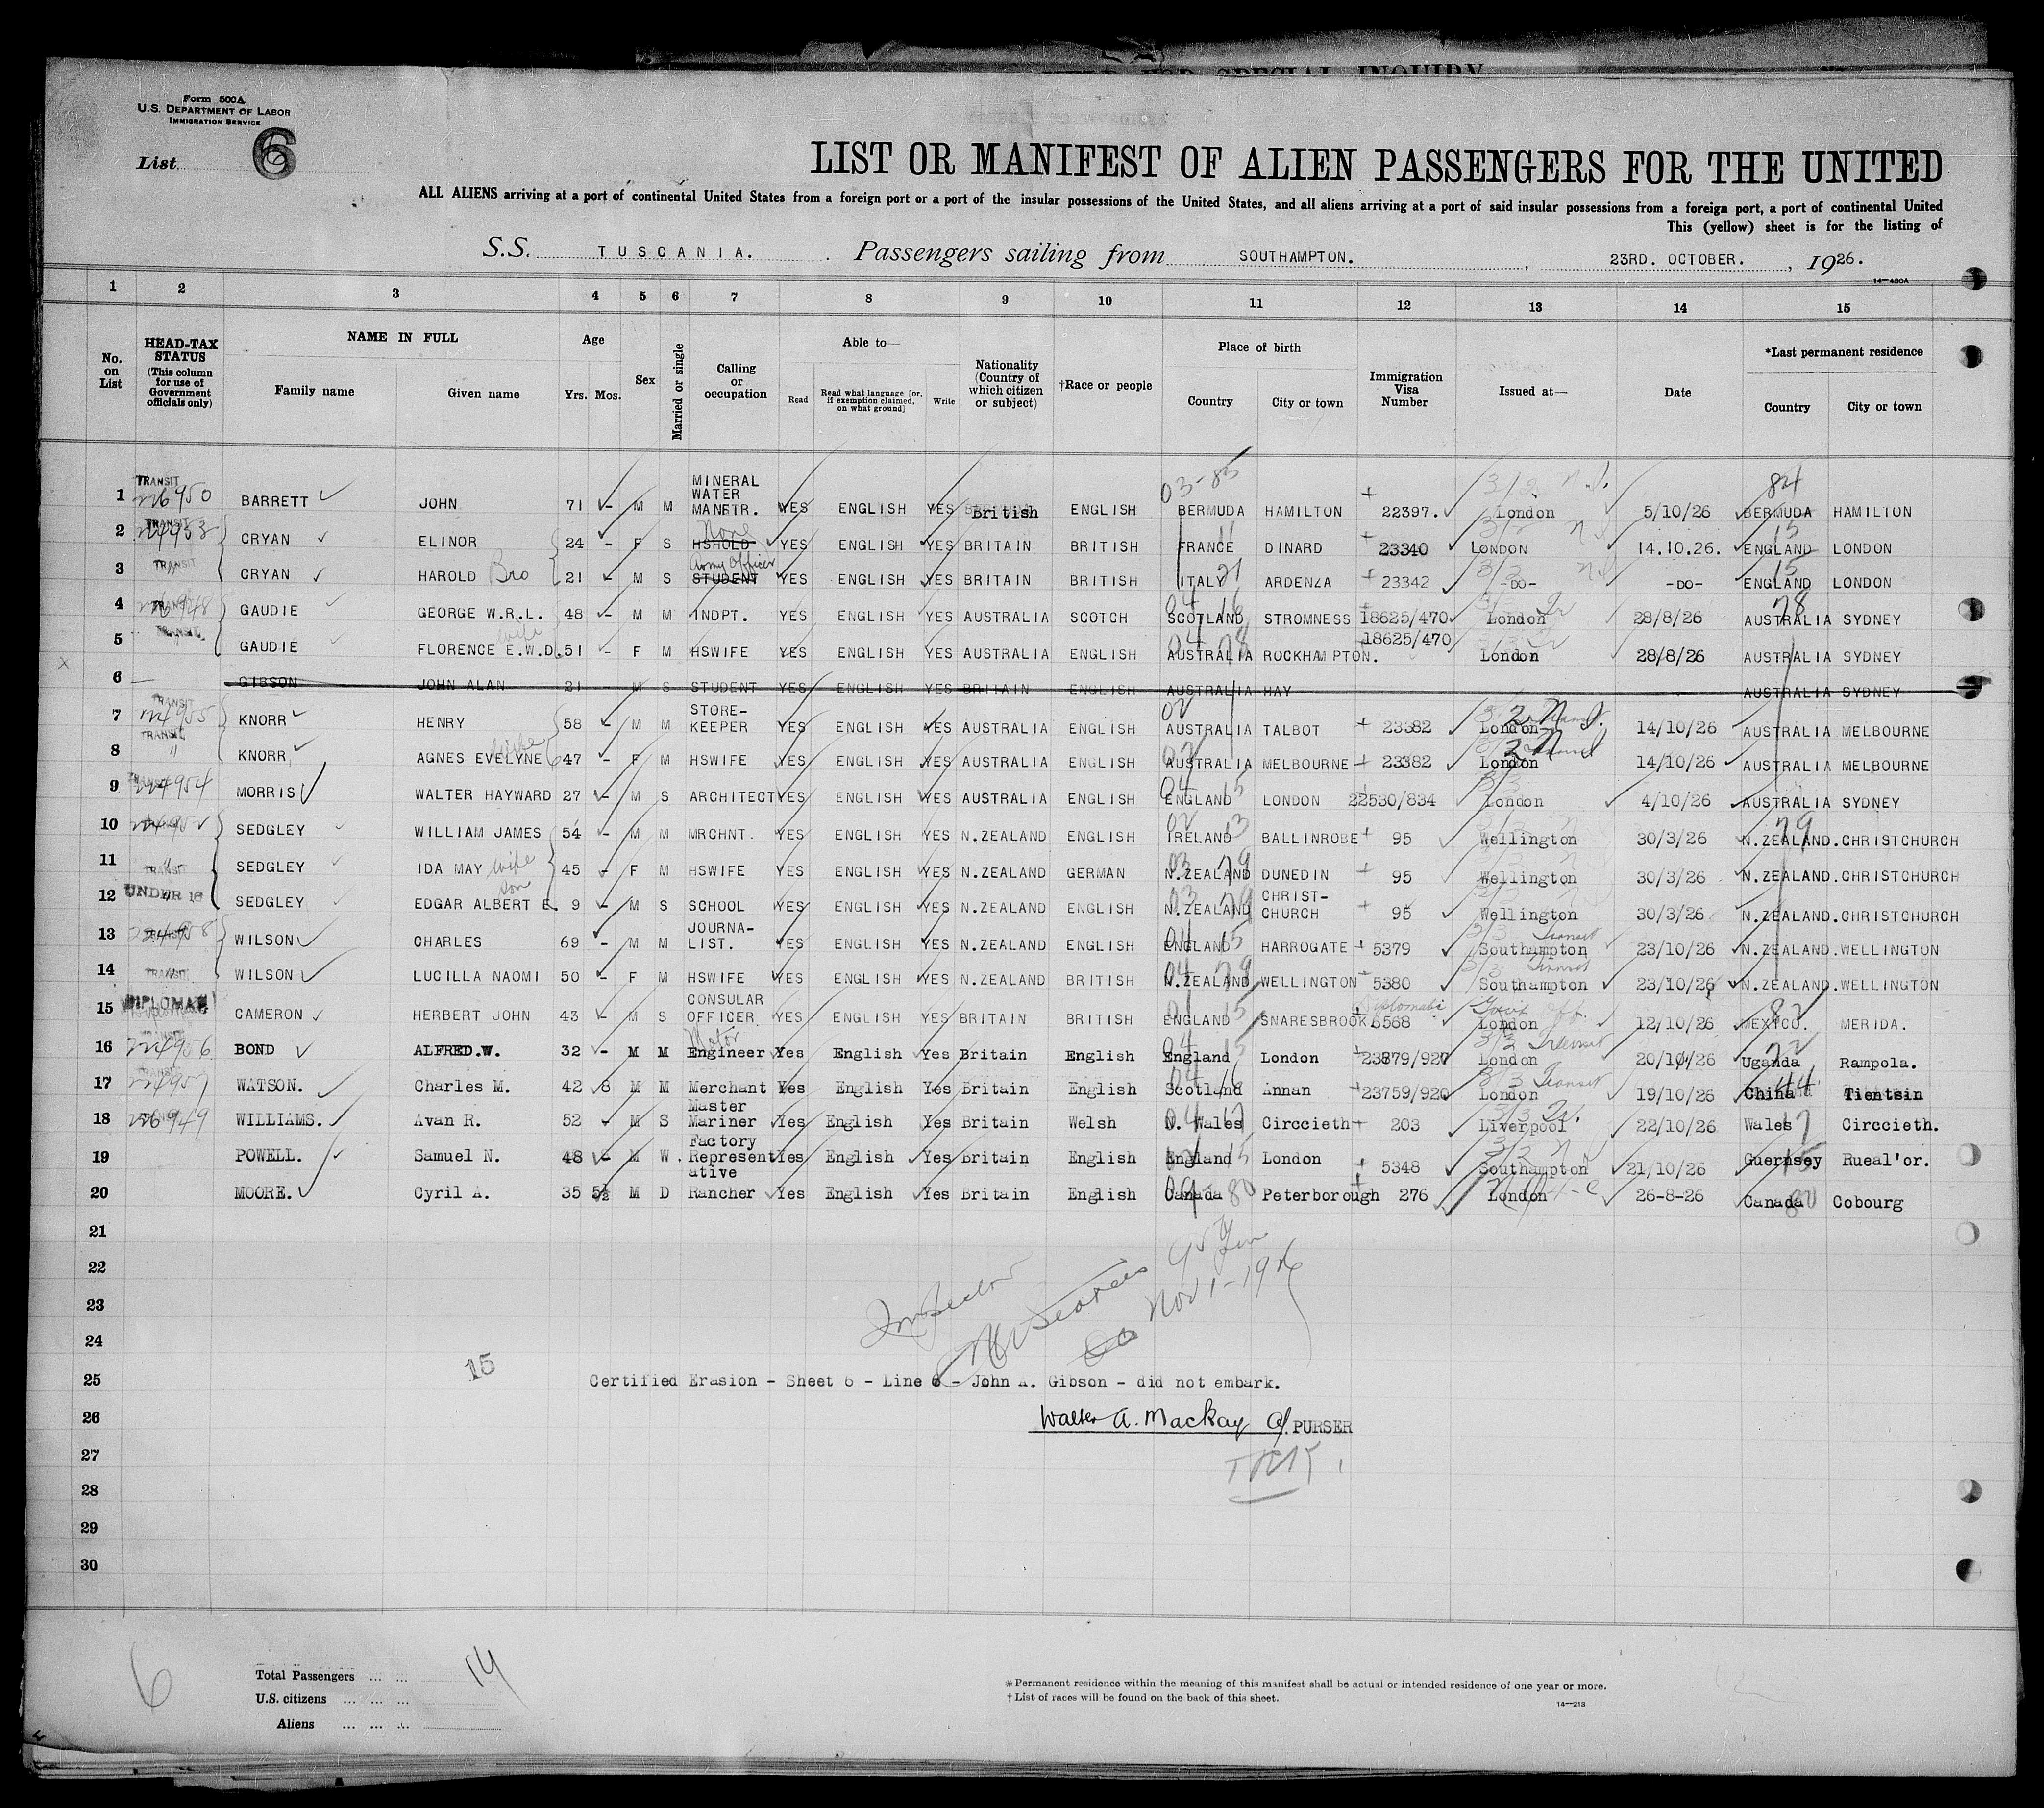 HELD FOR SPECIAL INQUIRY
Form 500A
U.S. DEPARTMENT OF LABOR
IMMIGRATION SERVICE
List 6
LIST OR MANIFEST OF ALIEN PASSENGERS FOR THE UNITED
ALL ALIENS arriving at a port of continental United States from a foreign port or a port of the insular possessions of the United States, and all aliens arriving at a port of said insular possessions from a foreign port, a port of continental United
This (yellow) sheet is for the listing of
S.S. TUSCANIA. Passengers sailing from SOUTHAMPTON. , 23RD. OCTOBER. , 1926.
14—430A
1 2 3 4 5 6 7 8 9 10 11 12 13 14 15
No. on List HEAD-TAX STATUS (This column for use of Government officials only) NAME IN FULL Family name Given name Age Yrs. Mos. Sex Married or single Calling or occupation Able to— Read Read what language [or, if exemption claimed, on what ground] Write Nationality (Country of which citizen or subject) †Race or people Place of birth Country City or town Immigration Visa Number Issued at— Date *Last permanent residence Country City or town
1 TRANSIT BARRETT JOHN 71 - M M MINERAL WATER MANFTR. YES ENGLISH YES British ENGLISH 03-85 BERMUDA HAMILTON 22397. London 5/10/26 84 BERMUDA HAMILTON
2 TRANSIT CRYAN ELINOR 24 - F S HSHOLD None YES ENGLISH YES BRITAIN BRITISH FRANCE DINARD 23340 LONDON 14.10.26. 15 ENGLAND LONDON
3 TRANSIT CRYAN HAROLD Bro 21 - M S STUDENT Army Officer YES ENGLISH YES BRITAIN BRITISH ITALY 21 ARDENZA 23342 -DO- -DO- 15 ENGLAND LONDON
4 GAUDIE GEORGE W.R.L. 48 - M M INDPT. YES ENGLISH YES AUSTRALIA SCOTCH 04 16 SCOTLAND STROMNESS 18625/470 London 28/8/26 78 AUSTRALIA SYDNEY
5 TRANSIT GAUDIE FLORENCE E.W.D. wife 51 - F M HSWIFE YES ENGLISH YES AUSTRALIA ENGLISH 04 78 AUSTRALIA ROCKHAMPTON. 18625/470 London 28/8/26 AUSTRALIA SYDNEY
x 6 — GIBSON JOHN ALAN 21 M S STUDENT YES ENGLISH YES BRITAIN ENGLISH AUSTRALIA HAY AUSTRALIA SYDNEY
7 TRANSIT KNORR HENRY 58 - M M STORE-KEEPER YES ENGLISH YES AUSTRALIA ENGLISH AUSTRALIA TALBOT 23382 London 14/10/26 AUSTRALIA MELBOURNE
8 TRANSIT " KNORR AGNES EVELYNE wife 47 - F M HSWIFE YES ENGLISH YES AUSTRALIA ENGLISH AUSTRALIA MELBOURNE 23382 London 14/10/26 AUSTRALIA MELBOURNE
9 MORRIS WALTER HAYWARD 27 - M S ARCHITECT YES ENGLISH YES AUSTRALIA ENGLISH 04 15 ENGLAND LONDON 22530/834 London 4/10/26 AUSTRALIA SYDNEY
10 SEDGLEY WILLIAM JAMES 54 - M M MRCHNT. YES ENGLISH YES N.ZEALAND ENGLISH 13 IRELAND BALLINROBE 95 Wellington 30/3/26 79 N.ZEALAND. CHRISTCHURCH
11 TRANSIT SEDGLEY IDA MAY wife 45 - F M HSWIFE YES ENGLISH YES N.ZEALAND GERMAN 03 79 N.ZEALAND DUNEDIN 95 Wellington 30/3/26 N.ZEALAND. CHRISTCHURCH
12 UNDER 16 SEDGLEY EDGAR ALBERT E. son 9 - M S SCHOOL YES ENGLISH YES N.ZEALAND ENGLISH 03 79 N.ZEALAND CHRIST-CHURCH 95 Wellington 30/3/26 N.ZEALAND. CHRISTCHURCH
13 WILSON CHARLES 69 - M M JOURNA-LIST. YES ENGLISH YES N.ZEALAND ENGLISH 04 15 ENGLAND HARROGATE 5379 3/3 Transit Southampton 23/10/26 N.ZEALAND. WELLINGTON
14 TRANSIT WILSON LUCILLA NAOMI 50 - F M HSWIFE YES ENGLISH YES N.ZEALAND BRITISH 04 79 N.ZEALAND WELLINGTON 5380 3/3 Transit Southampton 23/10/26 N.ZEALAND. WELLINGTON
15 DIPLOMAT CAMERON HERBERT JOHN 43 - M S CONSULAR OFFICER YES ENGLISH YES BRITAIN BRITISH 01 15 ENGLAND SNARESBROOK 6568 Diplomatic Govt Off. London 12/10/26 82 MEXICO. MERIDA.
16 TRANSIT BOND ALFRED.W. 32 - M M Motor Engineer Yes English Yes Britain English 04 15 England London 23879/927 3/3 Transit London 20/10/26 Uganda Rampola.
17 TRANSIT WATSON. Charles M. 42 8 M M Merchant Yes English Yes Britain English 04 16 Scotland Annan 23759/920 3/3 Transit London 19/10/26 44 China Tientsin
18 WILLIAMS. Avan R. 52 - M S Master Mariner Yes English Yes Britain Welsh 04 17 N. Wales Circcieth 203 Liverpool 22/10/26 17 Wales Circcieth.
19 POWELL. Samuel N. 48 - M W. Factory Representative Yes English Yes Britain English 15 England London 5348 Southampton 21/10/26 15 Guernsey Rueal'or.
20 MOORE. Cyril A. 35 5½ M D Rancher Yes English Yes Britain English 80 Canada Peterborough 276 London 26-8-26 80 Canada Cobourg
21
22
23
24
Inspector
Nov 1-1926
15
25 Certified Erasion - Sheet 6 - Line 6 - John A. Gibson - did not embark.
26 Walter A. Mackay PURSER
27
28
29
30
6
Total Passengers ... ... 14
U.S. citizens ... ... ...
Aliens ... ... ...
* Permanent residence within the meaning of this manifest shall be actual or intended residence of one year or more.
† List of races will be found on the back of this sheet.
14—213